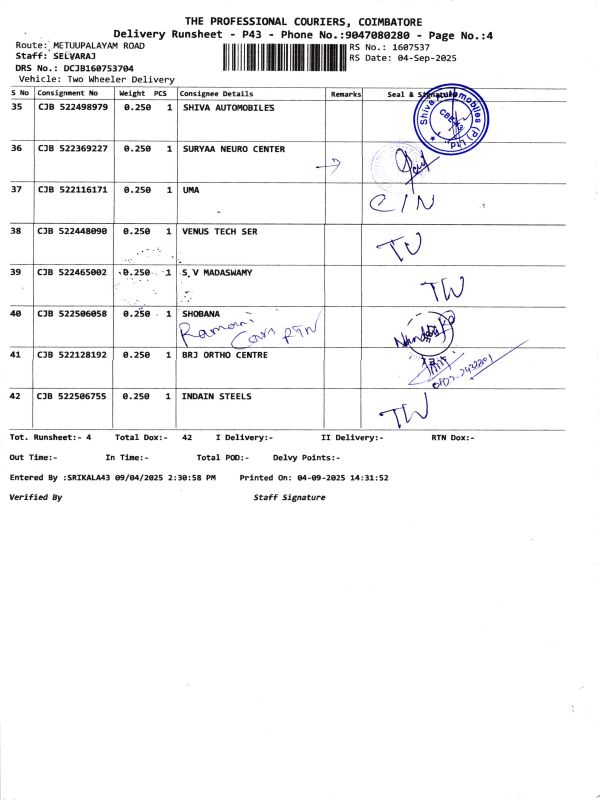 THE PROFESSIONAL COURIERS, COIMBATORE
Delivery Runsheet - P43 - Phone No.:9047080280 - Page No.:4
Route: METUUPALAYAM ROAD
RS No.: 1607537
Staff: SELVARAJ
RS Date: 04-Sep-2025
DRS No.: DCJB160753704
Vehicle: Two Wheeler Delivery
S No Consignment No Weight PCS Consignee Details Remarks Seal & Signature
35 CJB 522498979 0.250 1 SHIVA AUTOMOBILES
Shiva Automobiles (P) Ltd.
36 CJB 522369227 0.250 1 SURYAA NEURO CENTER
37 CJB 522116171 0.250 1 UMA C/N
38 CJB 522448090 0.250 1 VENUS TECH SER TW
39 CJB 522465002 0.250 1 S,V MADASWAMY TW
40 CJB 522506058 0.250 1 SHOBANA
Ramani Cars RTN
41 CJB 522128192 0.250 1 BRJ ORTHO CENTRE
42 CJB 522506755 0.250 1 INDAIN STEELS TW
Tot. Runsheet:- 4 Total Dox:- 42 I Delivery:- II Delivery:- RTN Dox:-
Out Time:- In Time:- Total POD:- Delvy Points:-
Entered By :SRIKALA43 09/04/2025 2:30:58 PM Printed On: 04-09-2025 14:31:52
Verified By Staff Signature